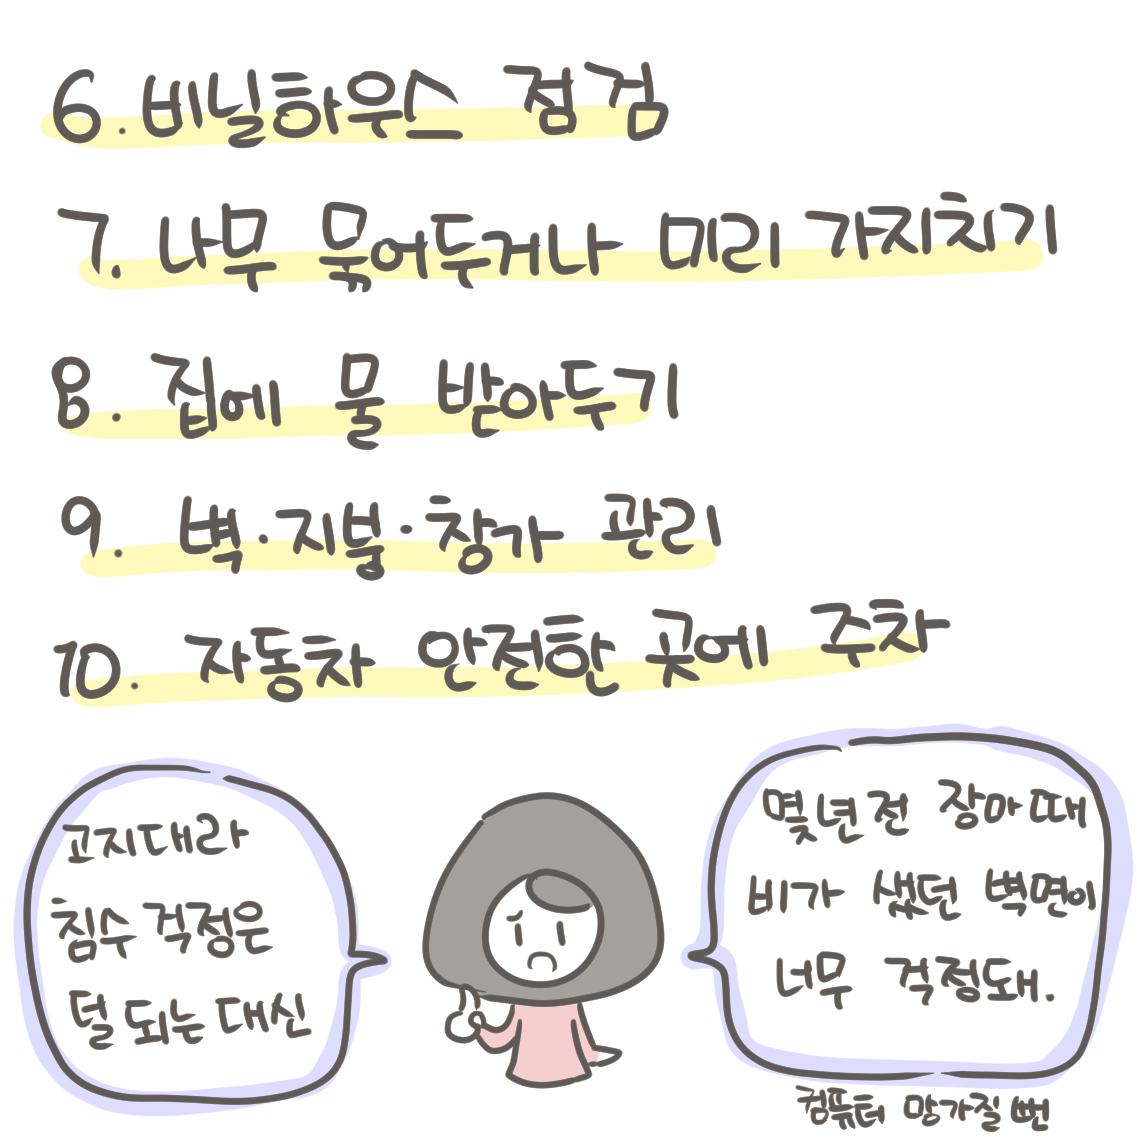 6. 비닐하우스 점검
7. 나무 묶어두거나 미리 가지치기
8. 집에 물 받아두기
9. 벽·지붕·창가 관리
10. 자동차 안전한 곳에 주차
고지대라
침수 걱정은
덜 되는 대신
몇년 전 장마때
비가 샜던 벽면이
너무 걱정돼.
컴퓨터 망가질 뻔